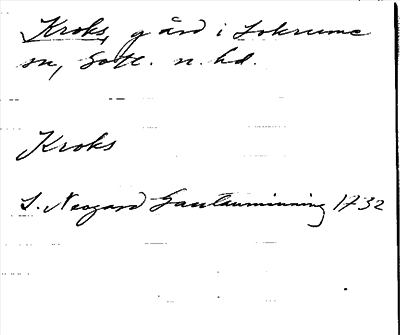 Kroks, gård i Lokrume
sn, Gotl. n. hd.
Kroks
S. Neogard Gautauminning 1732